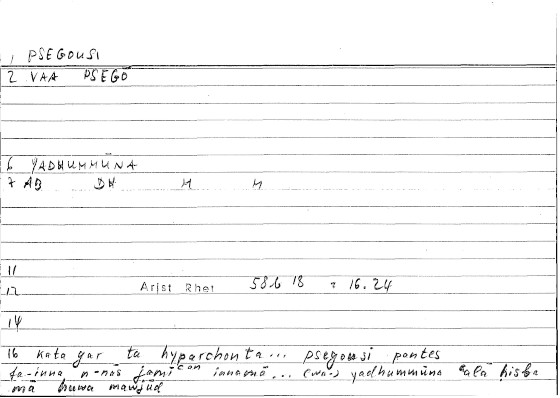 1 PSEGOUSI
2 VAA PSEGŌ
6 YADHUMMŪNA
7 AB DH M M
11
12 Arist Rhet 58b 18 = 16.24
14
16 kata gar ta hyparchonta... psegousi pantes
fa-inna n-nās jamīᶜan innamā... (wa-) yadhummūna ᶜalā ḥisba
mā huwa mawjūd